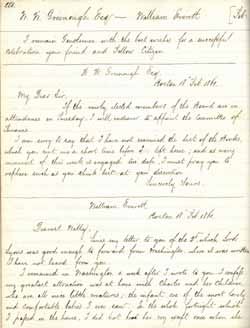 W. W. Greenough Esq — William Everett
I remain Gentlemen with the best wishes for a successful
celebration your friend and Fellow Citizen
W. W. Greenough Esq.
Boston 18 Feb. 1861.
My Dear Sir,
If the newly elected members of the Board are in
attendance on Tuesday, I will endeavor to appoint the Committee of
Finance
I am sorry to say that I have not examined the list of the Books,
which you sent me a short time before I left home; and as every
moment of this week is engaged in I must pray you to
replace such as you think best at your discretion
Sincerely Yours.
William Everett
Boston 18 Feb. 1861.
Dearest Willy;
Since my letter to you of the which Lord
Lyons was good enough to forward from Washington, when it was written
I have not heard from you
I remained in Washington a week after I wrote to you. I confess
my greatest attraction was at home with Charlie and her children,
who are all were little creatures; the infant one of the most lovely
and comfortable babies I ever saw. In the whole fortnight which
I passed in the house, I did not hear her cry except once when she